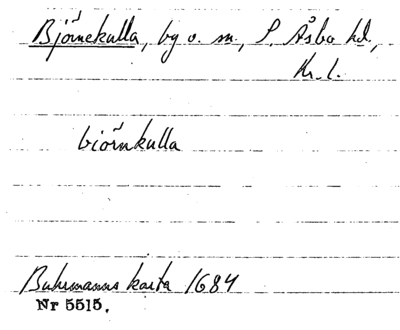 Björnekulla, by o. sn, S. Åsbo hd.,
Kr. l.
biörnkulla
Buhrmanns karta 1684
Nr 5515.